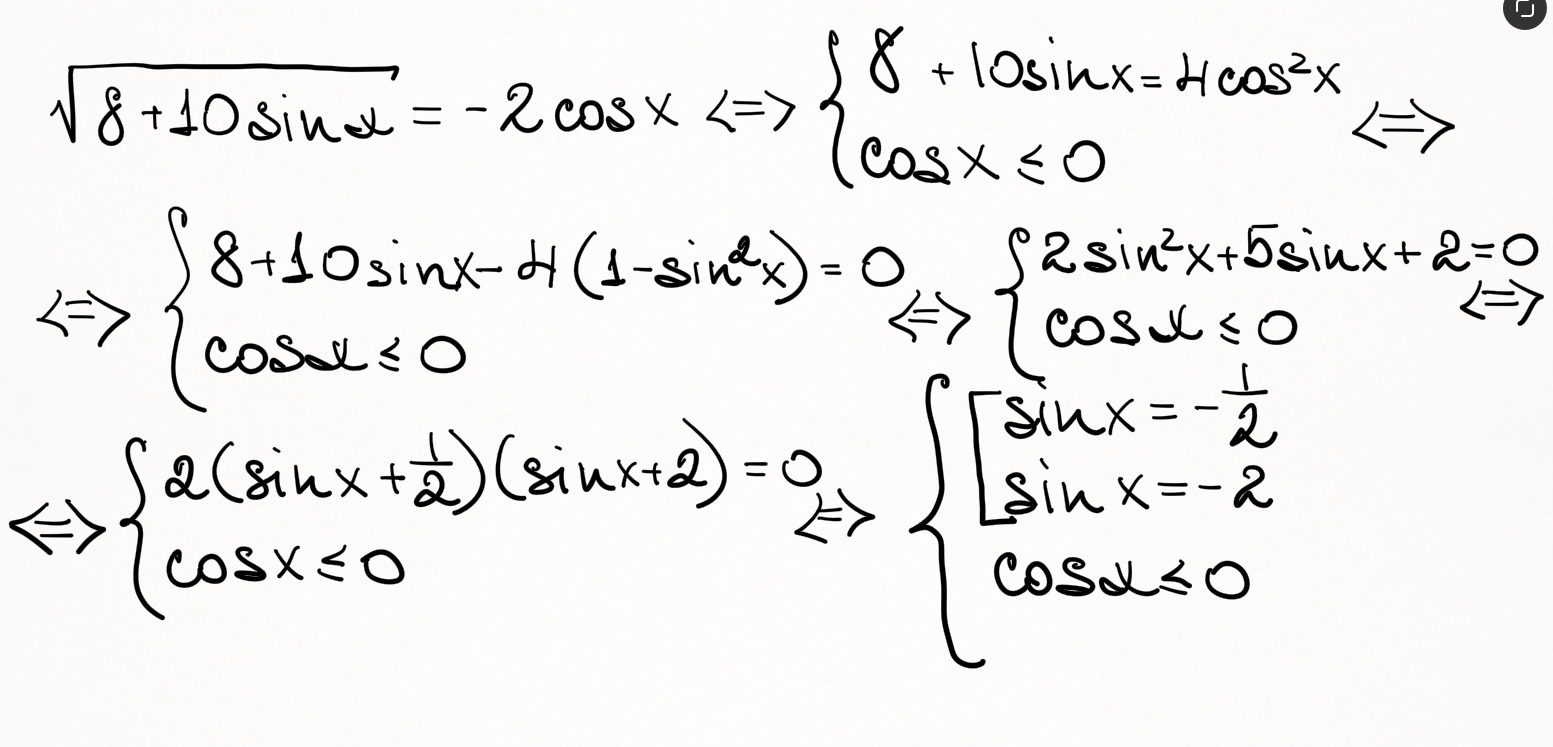 √(8+10sinx) = -2cosx <=> { 8 + 10sinx = 4cos²x ; cosx ≤ 0 <=>
<=> { 8+10sinx - 4(1-sin²x) = 0 ; cosx ≤ 0 <=> { 2sin²x+5sinx+2=0 ; cosx ≤ 0 <=>
<=> { 2(sinx+1/2)(sinx+2) = 0 ; cosx ≤ 0 <=> { [ sinx = -1/2 ; sinx = -2 ; cosx ≤ 0